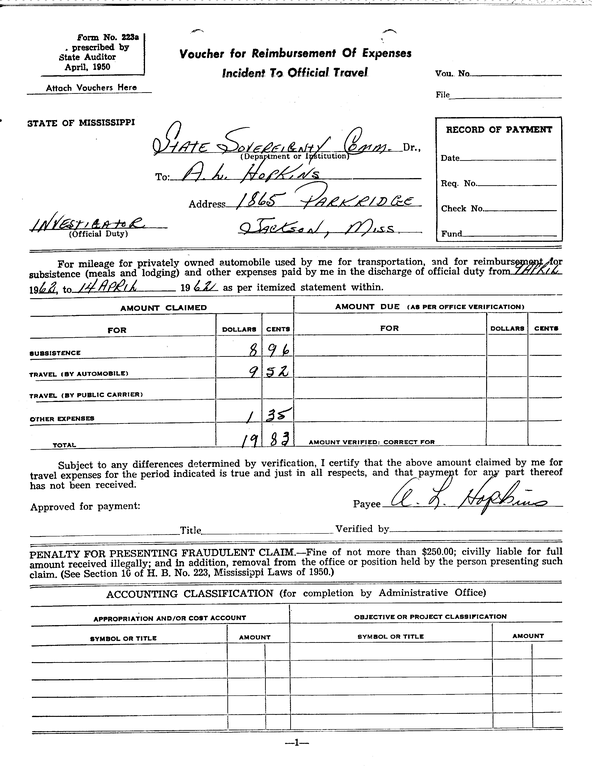 Form No. 223a
prescribed by
State Auditor
April, 1950
Attach Vouchers Here
Voucher for Reimbursement Of Expenses
Incident To Official Travel
Vou. No.
File
STATE OF MISSISSIPPI
STATE SOVEREIGNTY COMM. Dr.,
(Department or Institution)
To: A. L. HOPKINS
Address 1865 PARKRIDGE
INVESTIGATOR JACKSON, MISS.
(Official Duty)
RECORD OF PAYMENT
Date
Req. No.
Check No.
Fund
For mileage for privately owned automobile used by me for transportation, and for reimbursement for
subsistence (meals and lodging) and other expenses paid by me in the discharge of official duty from 7 APRIL
1962, to 14 APRIL 1962 as per itemized statement within.
AMOUNT CLAIMED AMOUNT DUE (AS PER OFFICE VERIFICATION)
FOR DOLLARS CENTS FOR DOLLARS CENTS
SUBSISTENCE 8 96
TRAVEL (BY AUTOMOBILE) 9 52
TRAVEL (BY PUBLIC CARRIER)
OTHER EXPENSES 1 35
TOTAL 19 83 AMOUNT VERIFIED: CORRECT FOR
Subject to any differences determined by verification, I certify that the above amount claimed by me for
travel expenses for the period indicated is true and just in all respects, and that payment for any part thereof
has not been received.
Approved for payment: Payee A. L. Hopkins
Title Verified by
PENALTY FOR PRESENTING FRAUDULENT CLAIM.—Fine of not more than $250.00; civilly liable for full
amount received illegally; and in addition, removal from the office or position held by the person presenting such
claim. (See Section 16 of H. B. No. 223, Mississippi Laws of 1950.)
ACCOUNTING CLASSIFICATION (for completion by Administrative Office)
APPROPRIATION AND/OR COST ACCOUNT OBJECTIVE OR PROJECT CLASSIFICATION
SYMBOL OR TITLE AMOUNT SYMBOL OR TITLE AMOUNT
—1—